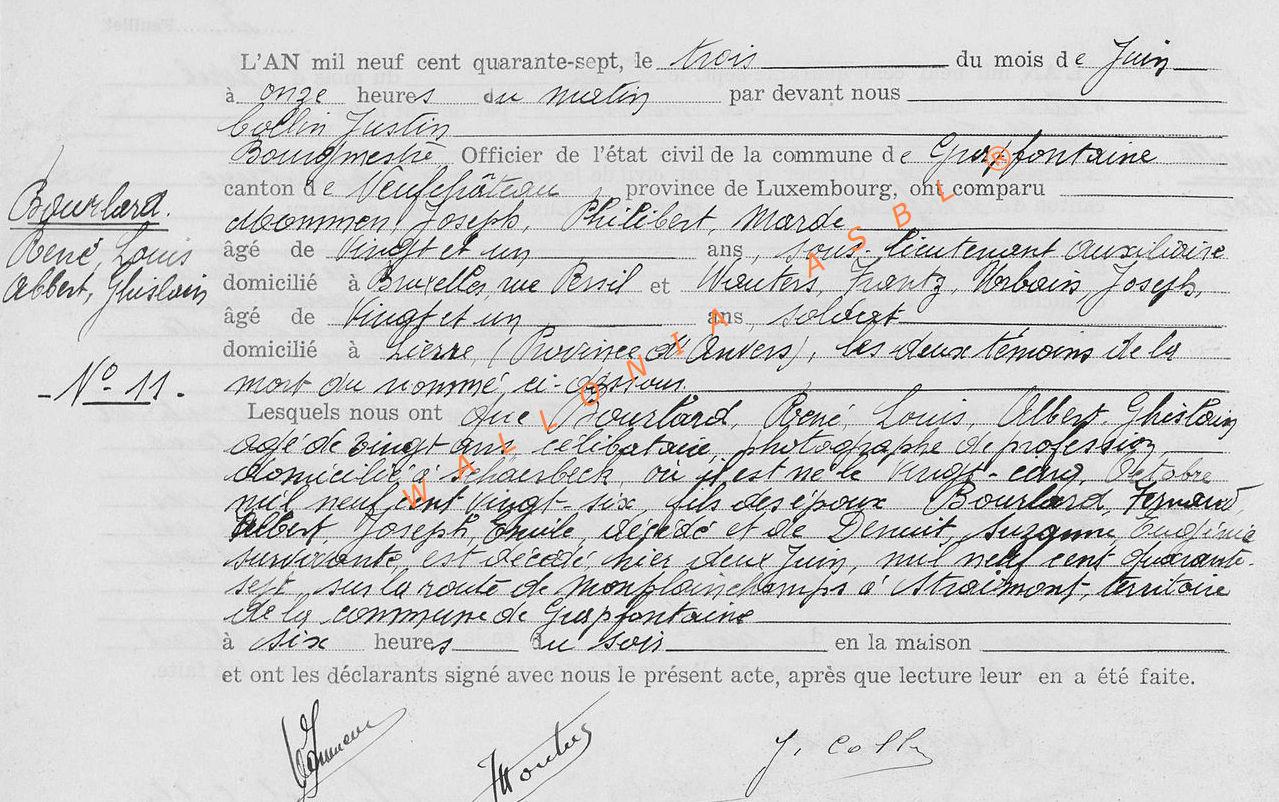 L'AN mil neuf cent quarante-sept, le trois du mois de Juin
à onze heures du matin par devant nous
Collin Justin
Bourgmestre, Officier de l'état civil de la commune de Grapfontaine
canton de Neufchâteau, province de Luxembourg, ont comparu
Mommen, Joseph, Philibert, Marde
âgé de vingt et un ans, sous-lieutenant auxiliaire
domicilié à Bruxelles, rue Persil et Wauters, Frantz, Urbain, Joseph,
âgé de vingt et un ans, soldat
domicilié à Lierre (Province d'Anvers), les deux témoins de la
mort du nommé, ci-dessous.
Lesquels nous ont que Bourlard, René, Louis, Albert, Ghislain
agé de vingt ans, célibataire, photographe de profession,
domicilié à Schaerbeck, où il est né le vingt-cinq Octobre
mil neuf cent vingt-six, fils des époux Bourlard, Fernand,
Albert, Joseph, Emile, décédé et de Denuit, Suzanne, Eugénie
survivante, est décédé, hier deux Juin, mil neuf cent quarante-
sept, sur la route de Monplainchamps à Straimont, territoire
de la commune de Grapfontaine
à six heures du soir en la maison
et ont les déclarants signé avec nous le présent acte, après que lecture leur en a été faite.
J. Collin
Bourlard.
René, Louis
Albert, Ghislain
- N° 11. -
WALLONIA ASBL ®